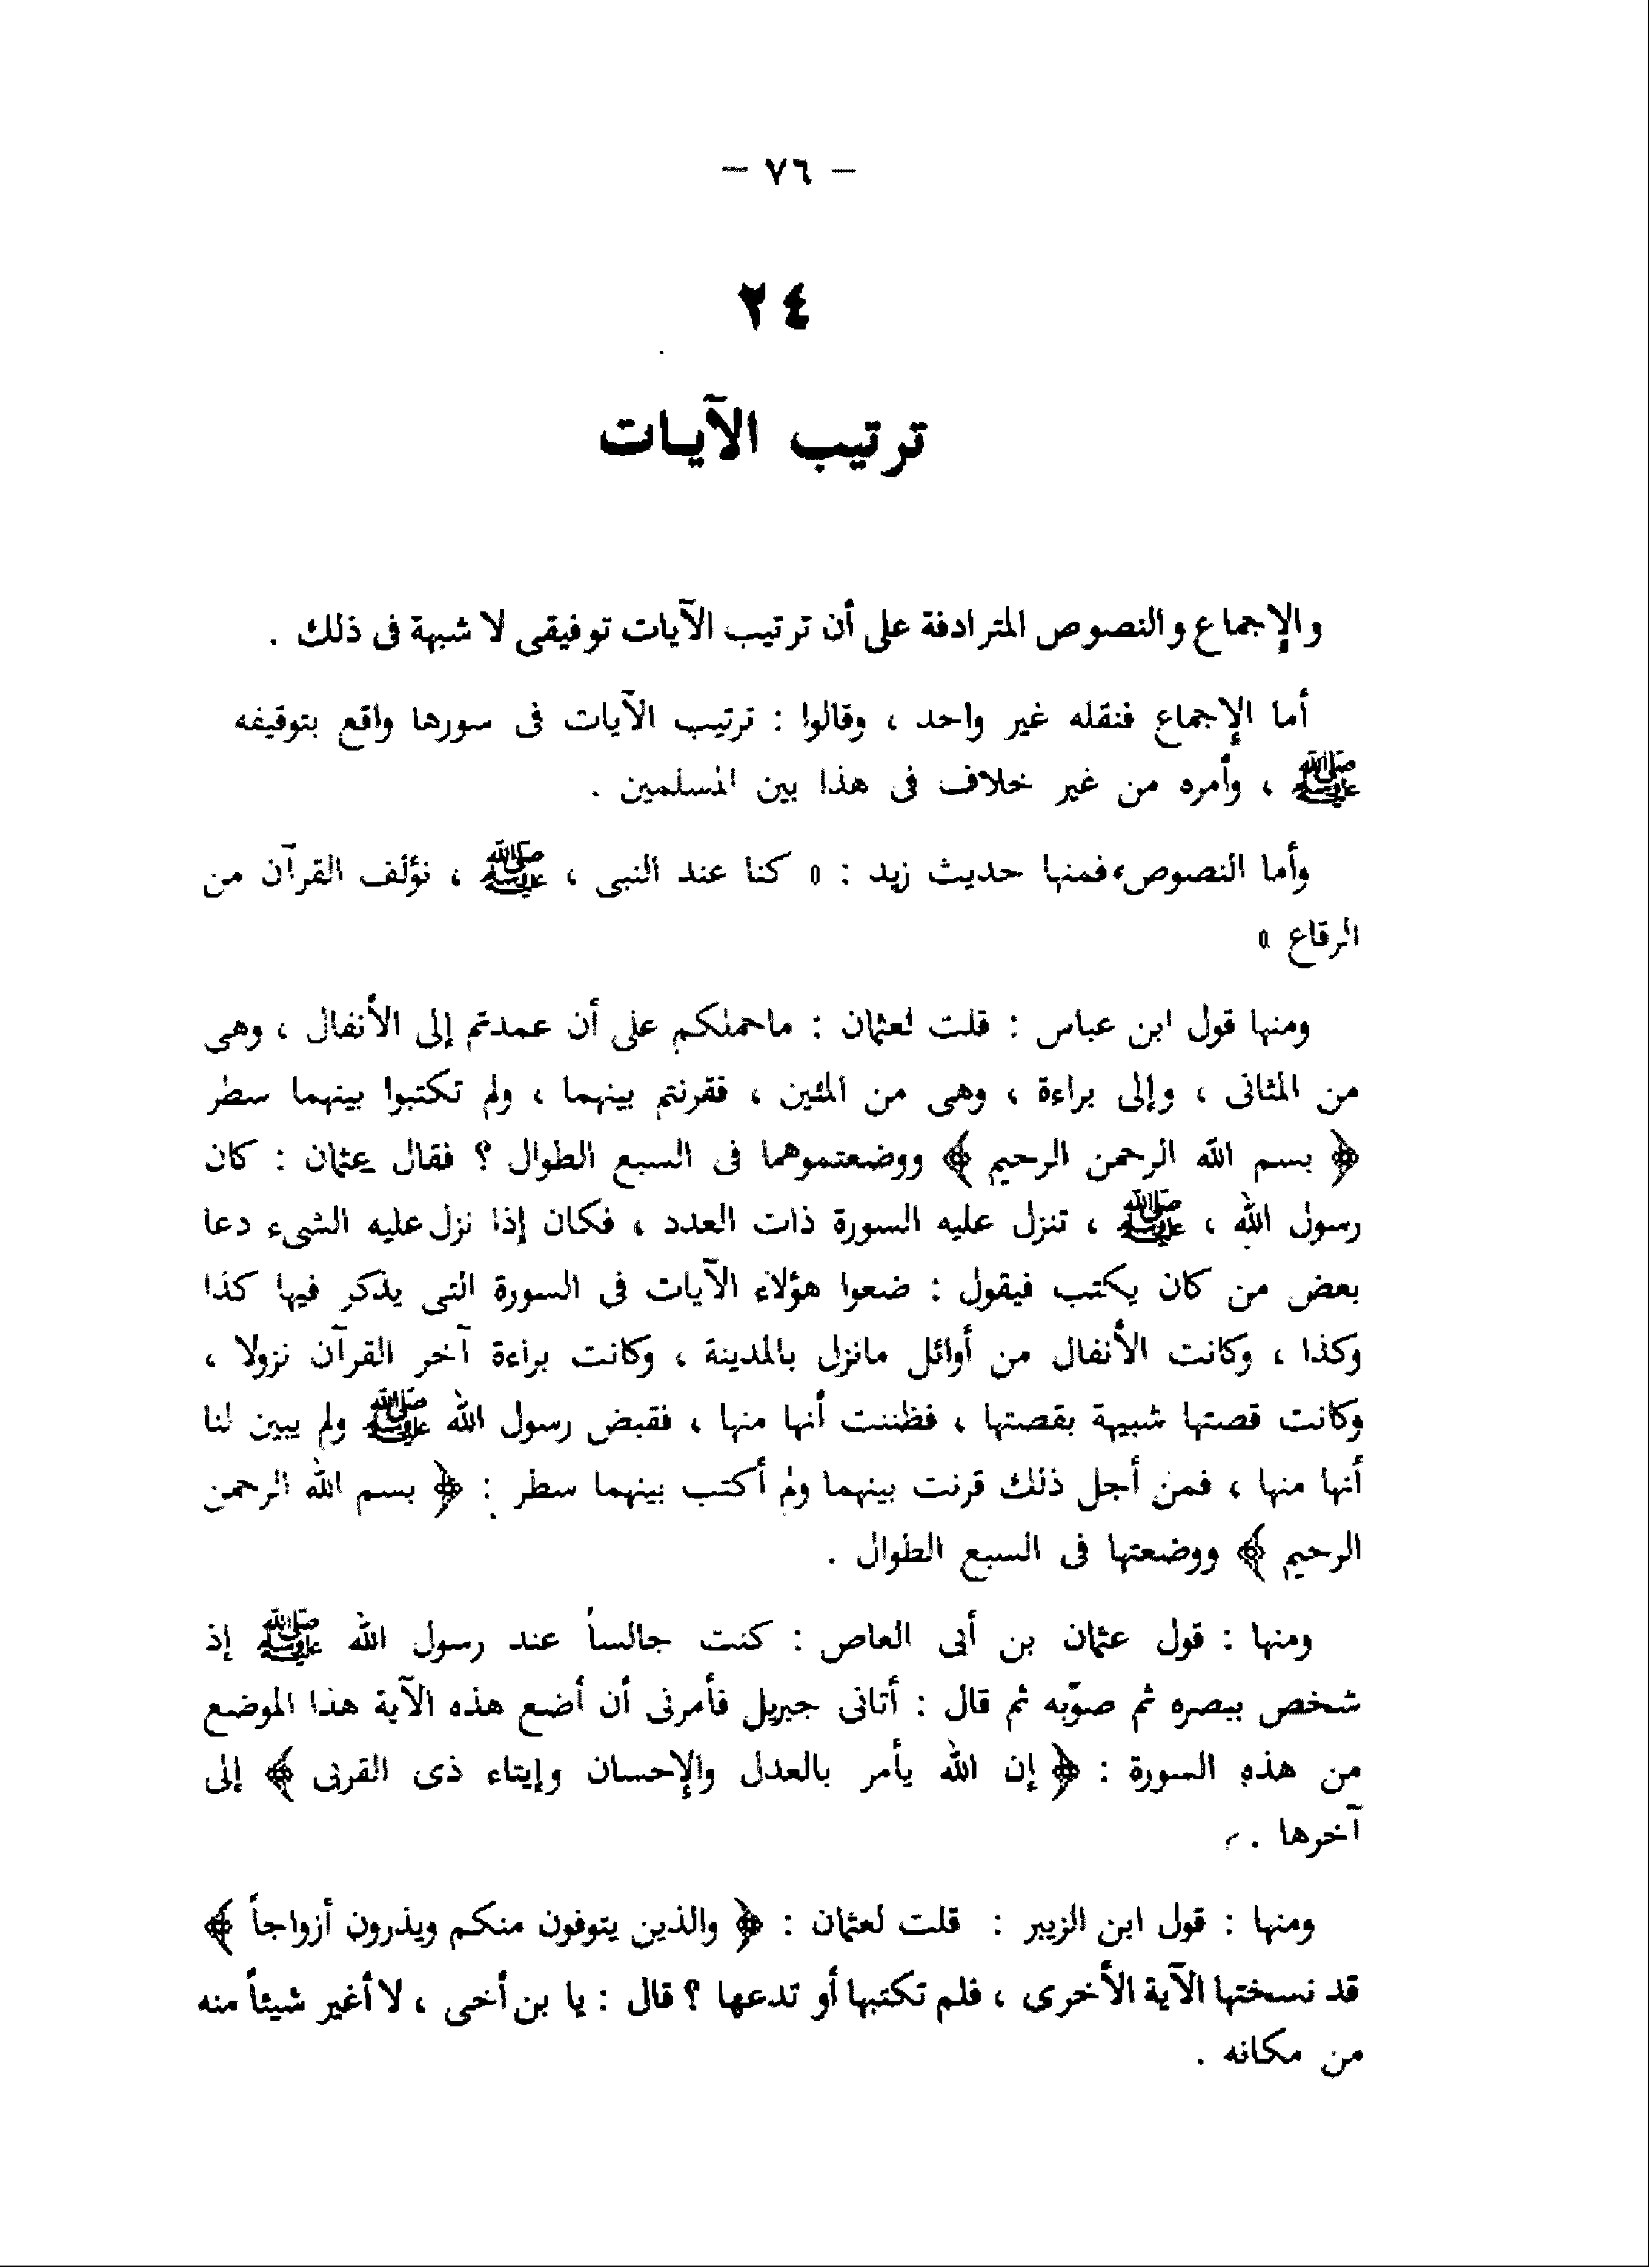 – ٧٦ –
٢٤
ترتيب الآيات
والإجماع والنصوص المترادفة على أن ترتيب الآيات توفيقى لا شبهة فى ذلك .
أما الإجماع فنقله غير واحد ، وقالوا : ترتيب الآيات فى سورها واقع بتوقيفه
ﷺ ، وأمره من غير خلاف فى هذا بين المسلمين .
وأما النصوص، فمنها حديث زيد : « كنا عند النبى ، ﷺ ، نؤلف القرآن من
الرقاع »
ومنها قول ابن عباس : قلت لعثمان : ماحملكم على أن عمدتم إلى الأنفال ، وهى
من المثانى ، وإلى براءة ، وهى من المئين ، فقرنتم بينهما ، ولم تكتبوا بينهما سطر
﴿ بسم الله الرحمن الرحيم ﴾ ووضعتموهما فى السبع الطوال ؟ فقال عثمان : كان
رسول الله ، ﷺ ، تنزل عليه السورة ذات العدد ، فكان إذا نزل عليه الشىء دعا
بعض من كان يكتب فيقول : ضعوا هؤلاء الآيات فى السورة التى يذكر فيها كذا
وكذا ، وكانت الأنفال من أوائل مانزل بالمدينة ، وكانت براءة آخر القرآن نزولا ،
وكانت قصتها شبيهة بقصتها ، فظننت أنها منها ، فقبض رسول الله ﷺ ولم يبين لنا
أنها منها ، فمن أجل ذلك قرنت بينهما ولم أكتب بينهما سطر : ﴿ بسم الله الرحمن
الرحيم ﴾ ووضعتها فى السبع الطوال .
ومنها : قول عثمان بن أبى العاص : كنت جالساً عند رسول الله ﷺ إذ
شخص ببصره ثم صوّبه ثم قال : أتانى جبريل فأمرنى أن أضع هذه الآية هذا الموضع
من هذه السورة : ﴿ إن الله يأمر بالعدل والإحسان وإيتاء ذى القربى ﴾ إلى
آخرها .
ومنها : قول ابن الزبير : قلت لعثمان : ﴿ والذين يتوفون منكم ويذرون أزواجاً ﴾
قد نسختها الآية الأخرى ، فلم تكتبها أو تدعها ؟ قال : يا بن أخى ، لا أغير شيئاً منه
من مكانه .